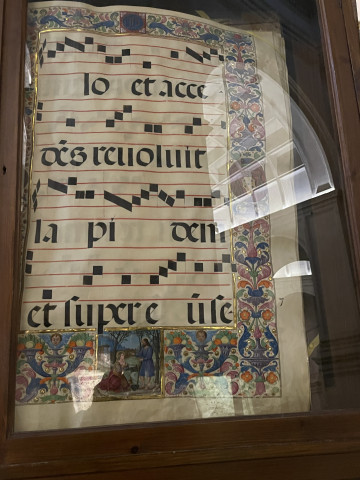 lo et acce
dēs revoluit
la pi dem
et super e